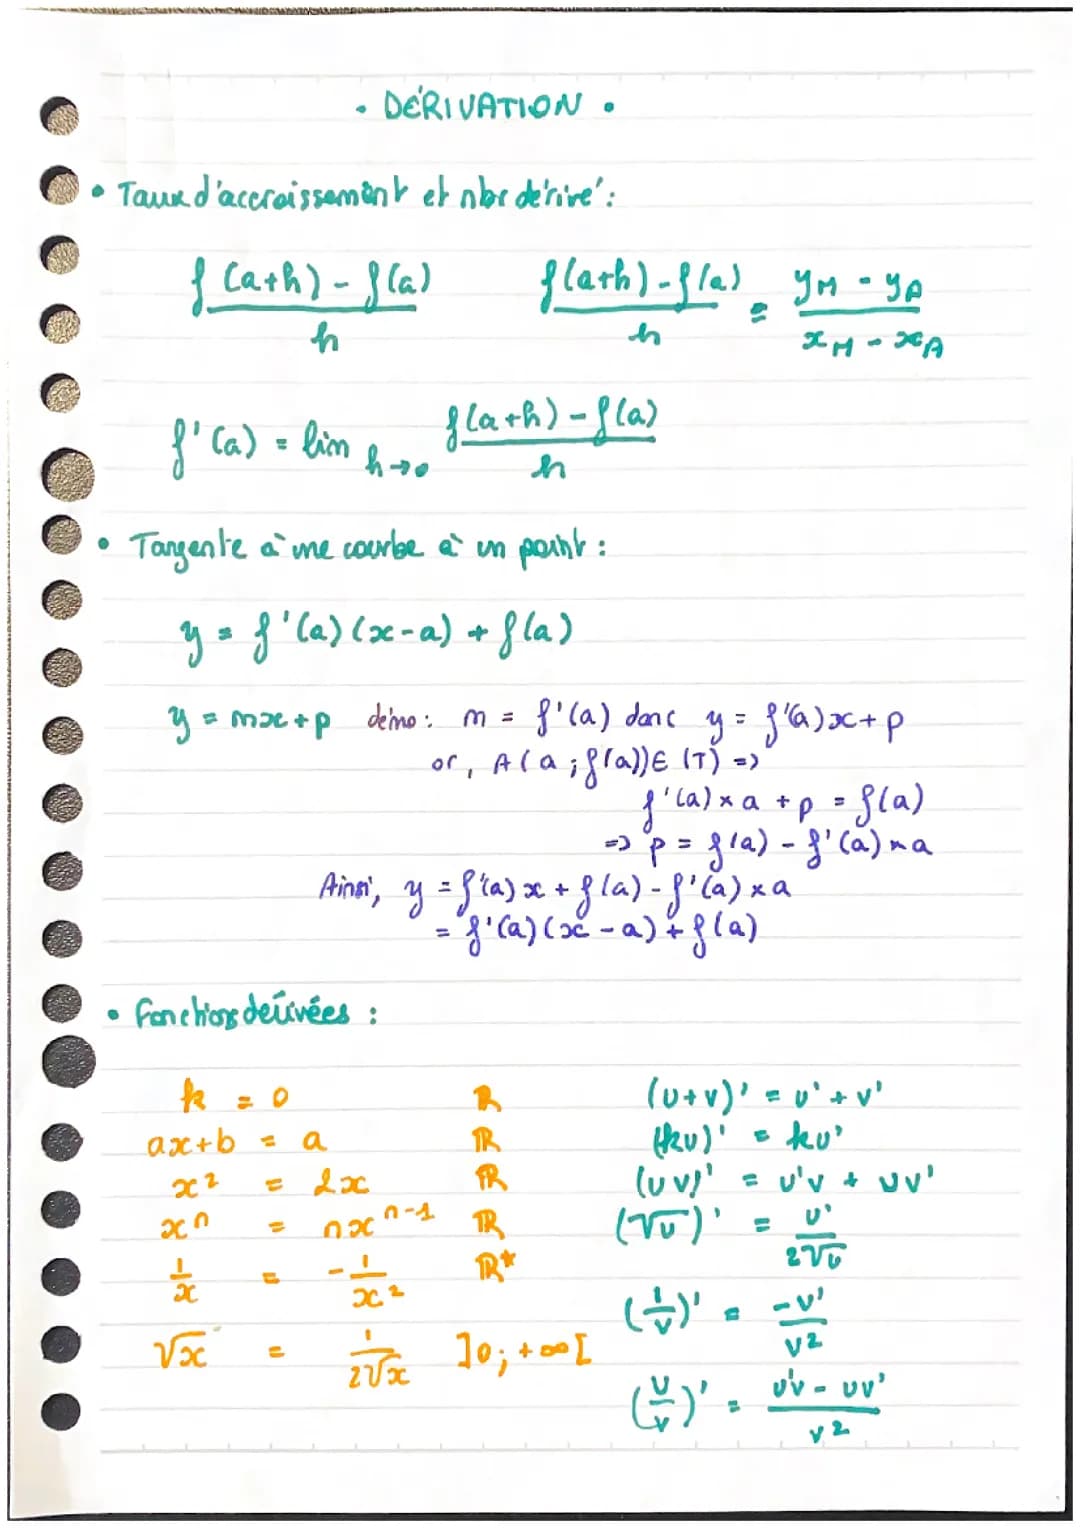 • DÉRIVATION •
• Taux d'accroissement et nbr dérivé :
f(a+h) - f(a) / h    f(a+h) - f(a) / h = yM - yA / xM - xA
f'(a) = lim h→0 f(a+h) - f(a) / h
• Tangente à une courbe à un point :
y = f'(a)(x-a) + f(a)
y = mx+p démo : m = f'(a) donc y = f'(a)x + p
or, A(a ; f(a)) ∈ (T) =>
f'(a) × a + p = f(a)
=> p = f(a) - f'(a) × a
Ainsi, y = f'(a) x + f(a) - f'(a) × a
= f'(a)(x - a) + f(a)
• Fonctions dérivées :
k = 0    ℝ    (u+v)' = u' + v'
ax+b = a    ℝ    (ku)' = ku'
x² = 2x    ℝ    (uv)' = u'v + uv'
xⁿ = nxⁿ⁻¹    ℝ    (√u)' = u' / 2√u
1/x = -1/x²    ℝ*    (1/v)' = -v' / v²
√x = 1 / 2√x    ]0 ; +∞[    (u/v)' = u'v - uv' / v²